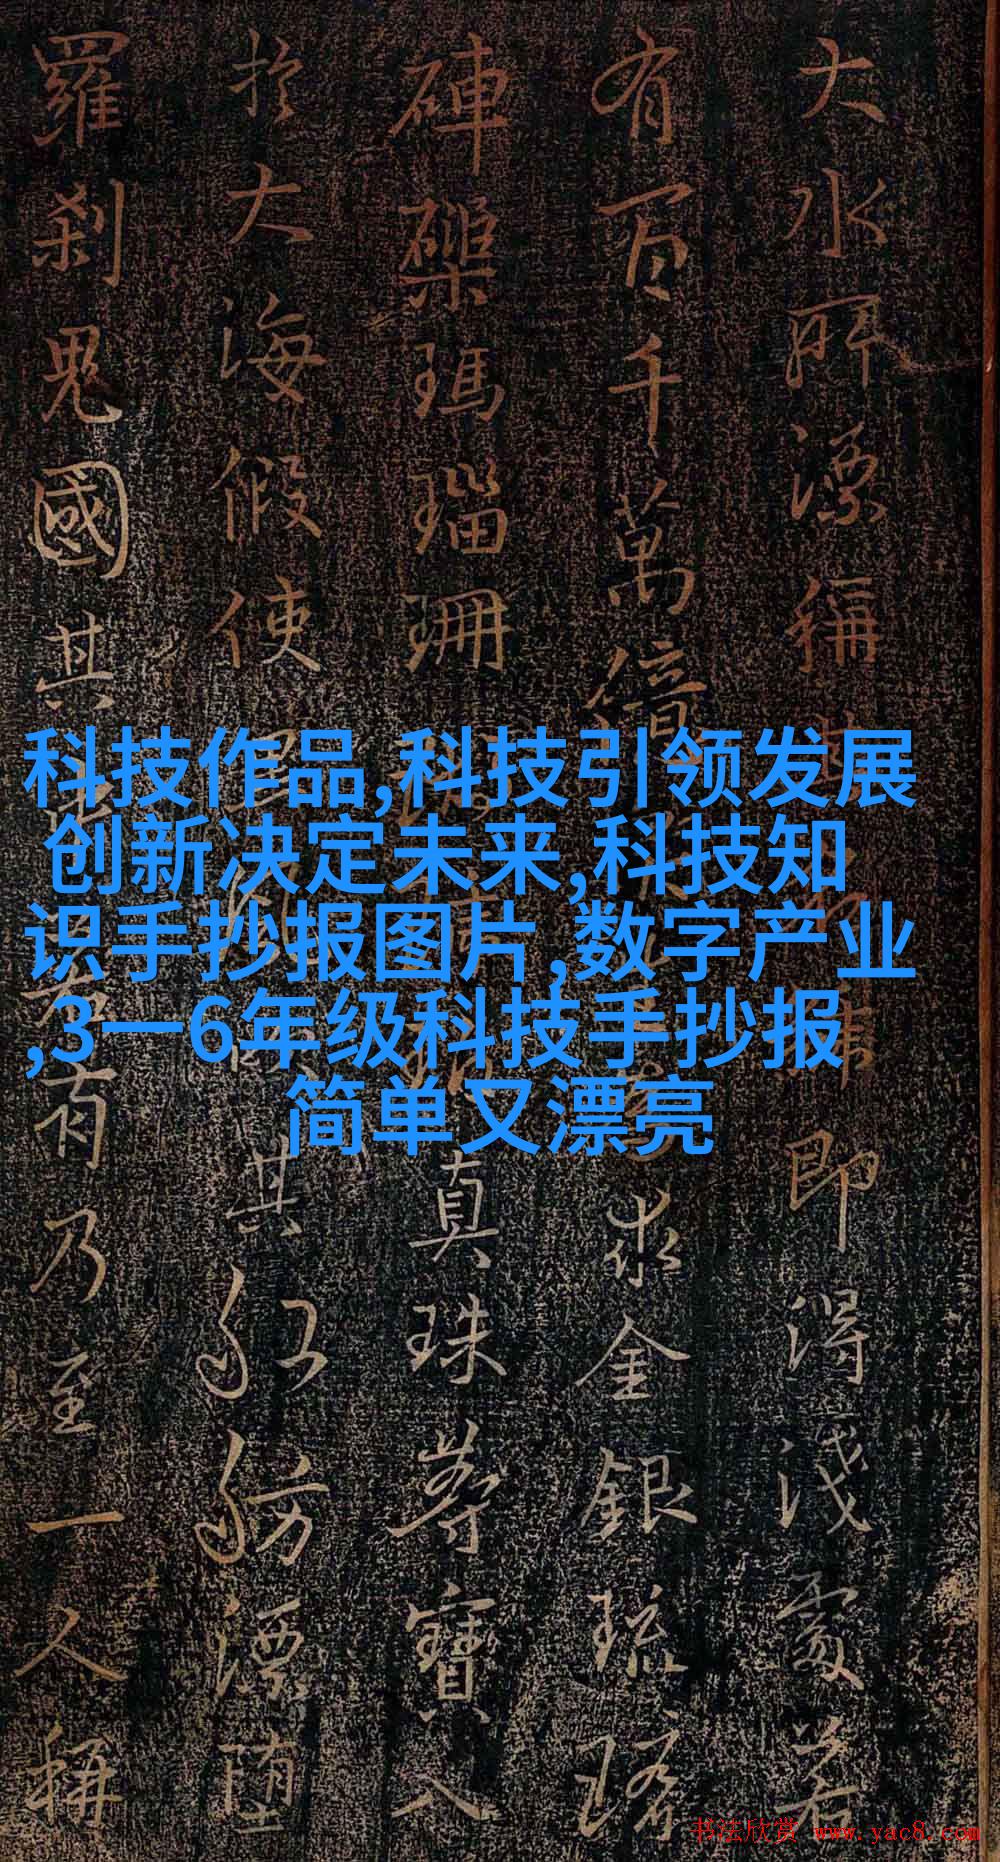 大水所漂稱其名號即得淺處若
有百千萬億求金銀琉璃
硨磲瑪瑙珊真珠等寶入
於大海假使其船舫漂墮
羅剎鬼國其若有乃至一人稱
科技作品,科技引领发展
创新决定未来,科技知
识手抄报图片,数字产业
,3一6年级科技手抄报
简单又漂亮
书法欣赏 www.yac8.com